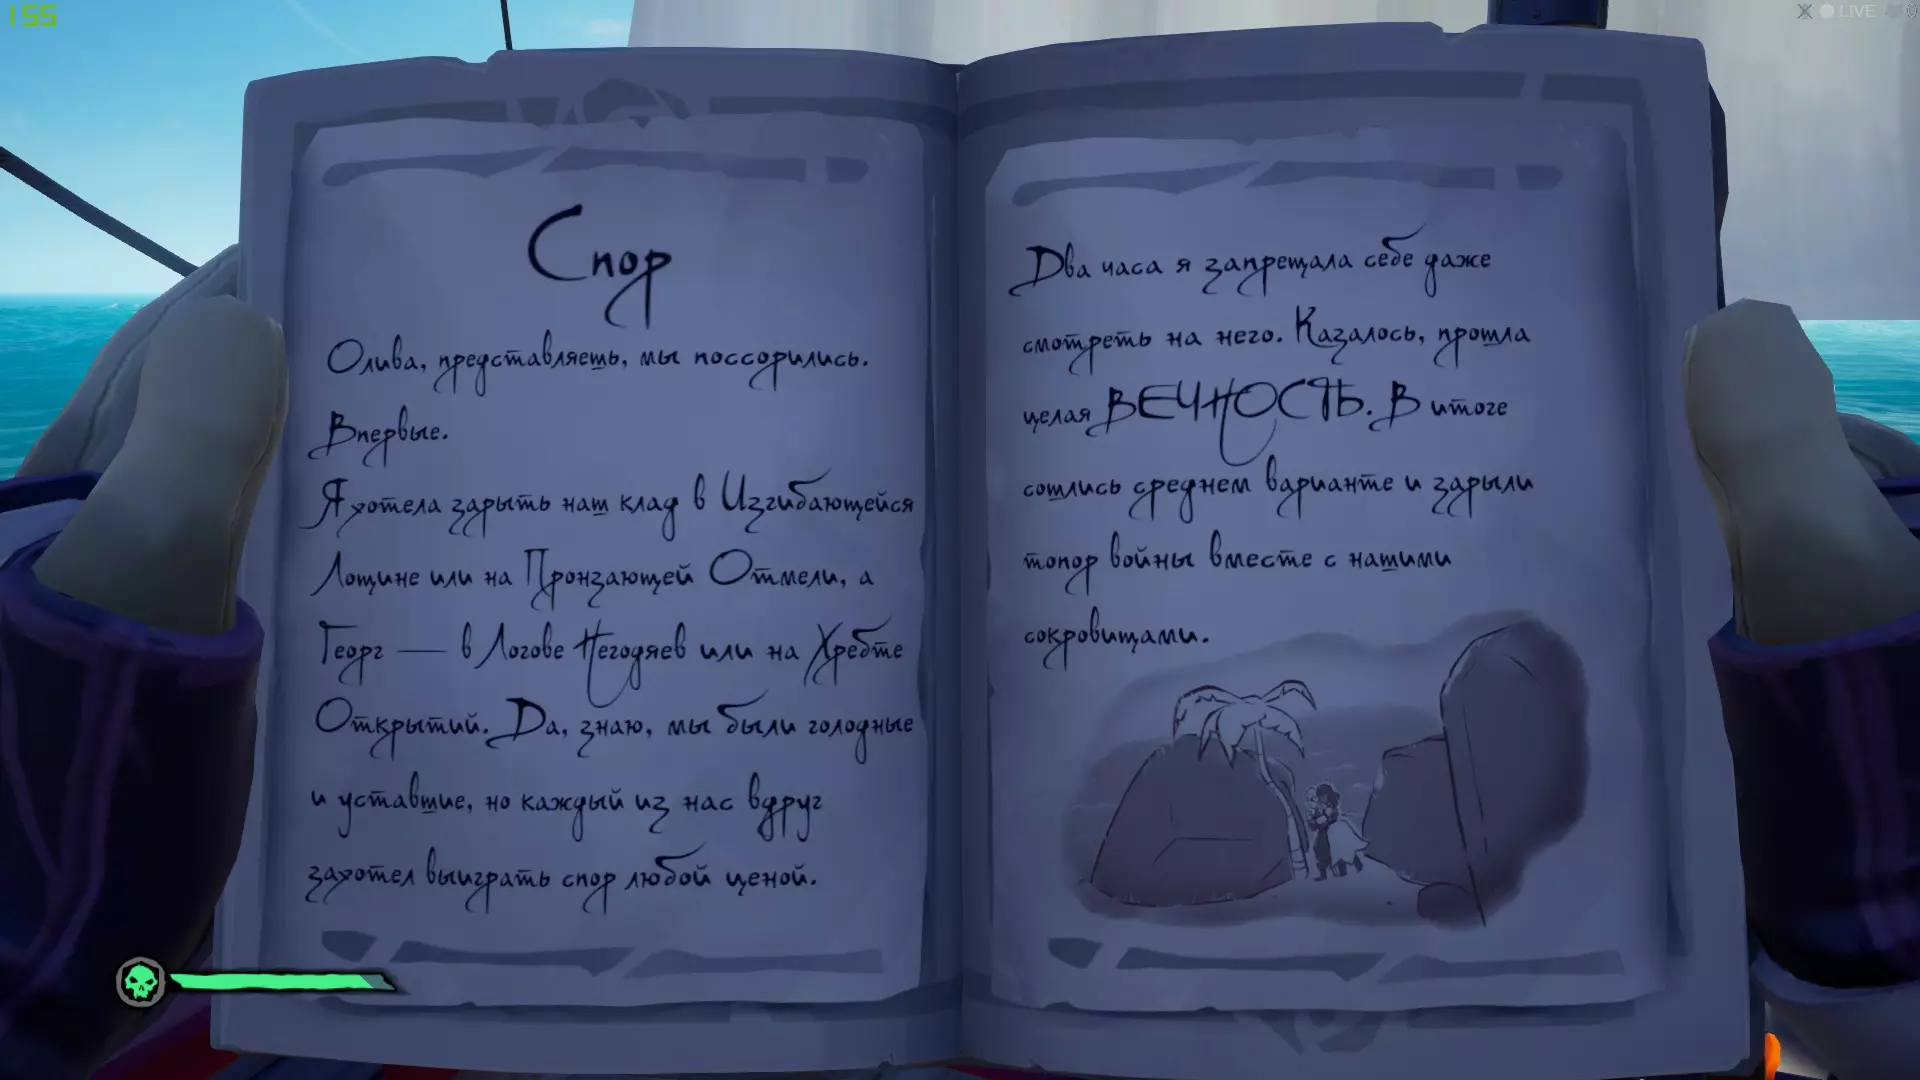 155
LIVE
0
Спор
Олива, представляешь, мы поссорились.
Впервые.
Я хотела зарыть наш клад в Изгибающейся
Лощине или на Пронзающей Отмели, а
Георг — в Логове Негодяев или на Хребте
Открытий. Да, знаю, мы были голодные
и уставшие, но каждый из нас вдруг
захотел выиграть спор любой ценой.
Два часа я запрещала себе даже
смотреть на него. Казалось, прошла
целая ВЕЧНОСТЬ. В итоге
сошлись среднем варианте и зарыли
топор войны вместе с нашими
сокровищами.